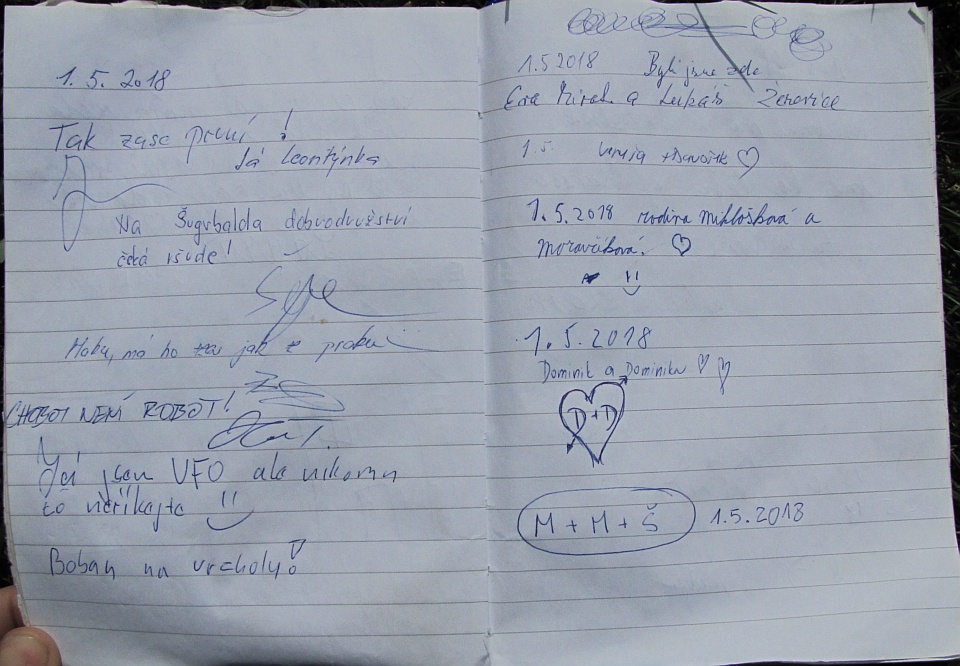 1. 5. 2018
Tak zase první!
Já Leontýnka
Na Šugrbalda dobrodružství
čeká všude!
má ho jak z praku
CHOBOT NENÍ ROBOT!
Já jsem UFO ale nikomu
to neříkejte
Boban na vrcholy!
1.5 2018 Byli jsme zde
Eva Mirek a Lukáš Žeravice
1.5.
1.5.2018 rodina Miklošková a
Moravčíková.
1.5.2018
Dominik a Dominika
D+D
M + M + Š 1.5.2018